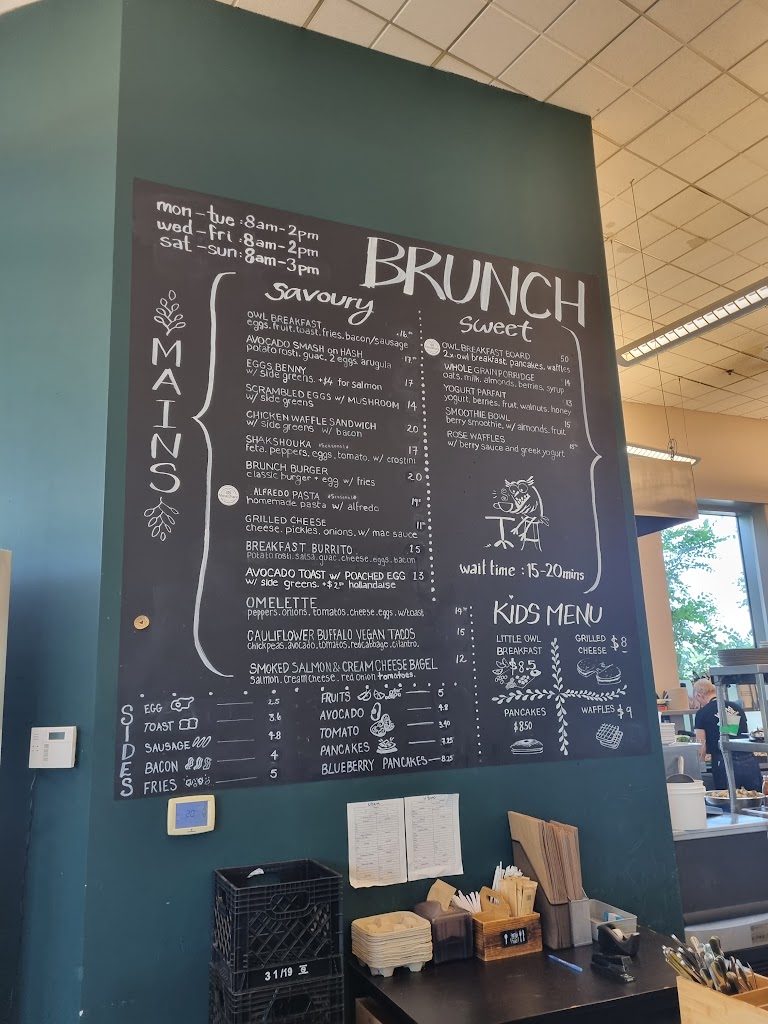 mon-tue:8am-2pm
wed-fri:8am-2pm
sat-sun:8am-3pm
BRUNCH
MAINS
savoury
OWL BREAKFAST
eggs, fruit, toast, fries, bacon/sausage
AVOCADO SMASH on HASH
potato rosti, guac, 2 eggs, arugula
EGGS BENNY 17
w/ side greens +$4 for salmon
SCRAMBLED EGGS w/ MUSHROOM 14
w/ side greens
CHICKEN WAFFLE SANDWICH 20
w/ side greens w/ bacon
SHAKSHOUKA 17
feta, peppers, eggs, tomato, w/ crostini
BRUNCH BURGER 20
classic burger + egg w/ fries
ALFREDO PASTA
homemade pasta w/ alfredo
GRILLED CHEESE
cheese, pickles, onions, w/ mac sauce
BREAKFAST BURRITO 15
Potato rosti, salsa, guac, cheese, eggs, bacon
AVOCADO TOAST w/ POACHED EGG 13
w/ side greens hollandaise
OMELETTE
peppers, onions, tomatos, cheese, eggs, w/toast
CAULIFLOWER BUFFALO VEGAN TACOS 15
chickpeas, avocado, tomatoes, red cabbage, cilantro
SMOKED SALMON & CREAM CHEESE BAGEL 12
salmon, cream cheese, red onion tomatoes.
sweet
OWL BREAKFAST BOARD 50
2x owl breakfast, pancakes, waffles
WHOLE GRAIN PORRIDGE 14
oats, milk, almonds, berries, syrup
YOGURT PARFAIT 13
yogurt, berries, fruit, walnuts, honey
SMOOTHIE BOWL 15
berry smoothie, w/ almonds, fruit
ROSE WAFFLES
w/ berry sauce and greek yogurt
wait time : 15-20mins
KiDS MENU
LITTLE OWL
BREAKFAST
$8.5
GRILLED
CHEESE $8
PANCAKES
$8.50
WAFFLES $9
SIDES
EGG 2.5
TOAST 3.6
SAUSAGE 4.8
BACON 4
FRIES 5
FRUITS 5
AVOCADO 4.8
TOMATO 3.40
PANCAKES 7.25
BLUEBERRY PANCAKES 8.25
31/19